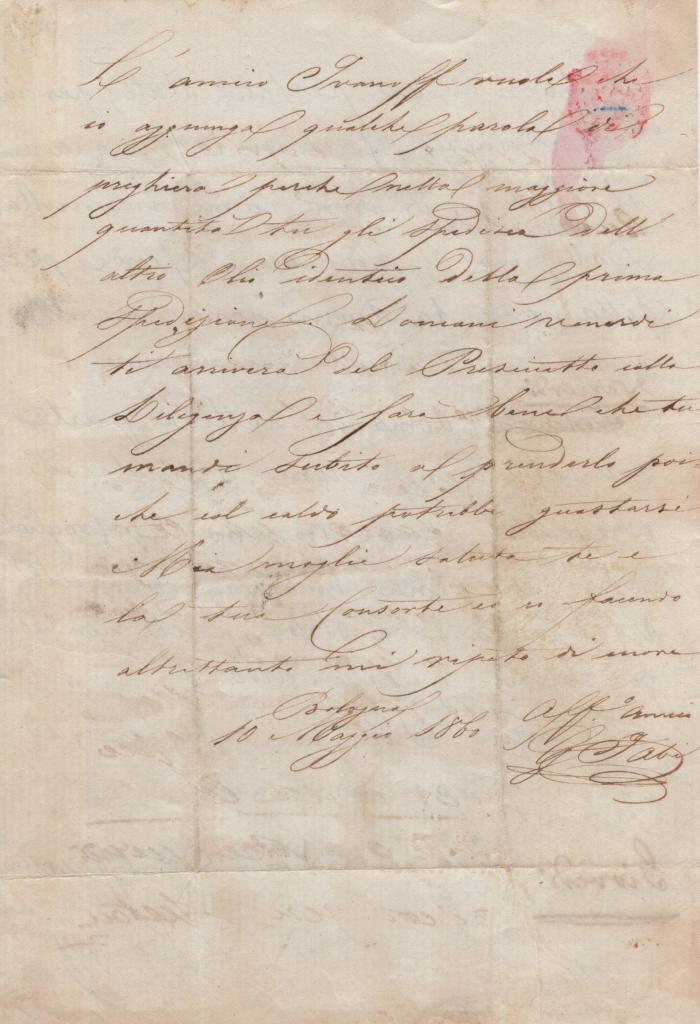 L'amico Ivanoff vuole che
io aggiunga qualche parola di
preghiera perche nella maggiore
quantità tu gli spedisca dell'
altro Olio identico della prima
Spedizione. Domani venerdi
ti arriverà del Presciutto colla
Diligenza e farai bene che tu
mandi subito al prenderlo poi
che col caldo potrebbe guastarsi
Mia moglie saluta te e
la tua Consorte ed io facendo
altrettanto mi ripeto di cuore
Bologna Aff.º amico
10 Maggio 1860